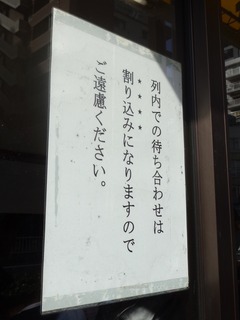 列内での待ち合わせは
割り込みになりますので
ご遠慮ください。